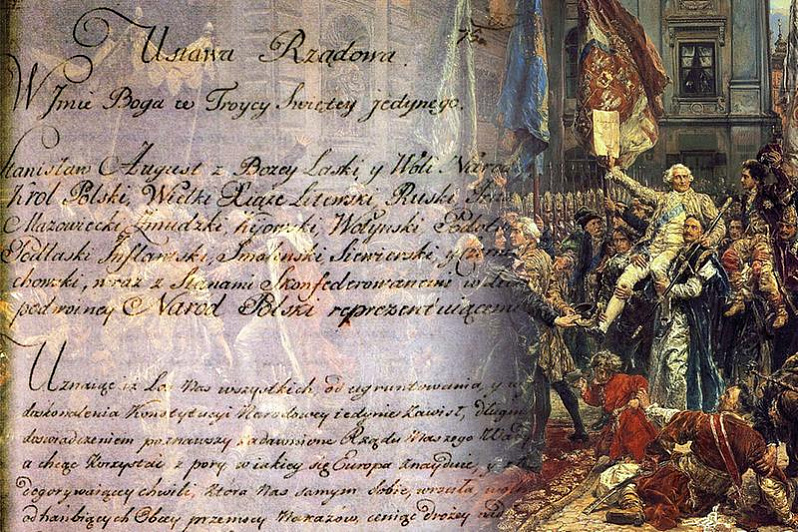 Ustawa Rządowa.
W Jmie Boga w Troycy Swiętey jedynego.
Stanisław August z Bozey Łaski, y Woli Narodu
Krol Polski, Wielki Xiąże Litewski, Ruski,
Mazowiecki, Zmudzki, Kijowski, Wołynski, Podol
Podlaski, Jnflantski, Smolenski, Siewierski, y Czerni
chowski, wraz z Stanami Skonfederowanemi w
podwoiney Narod Polski reprezentuiącemi
Uznaiąc iż Los Nas wszystkich, od ugruntowania, y
doskonalenia Konstytucyi Narodowey iedynie zawisł, długim
doswiadczeniem poznawszy zadawnione Rządu Naszego
a chcąc korzystać z pory w iakiey się Europa znayduie, y
dogorywaiącey chwili, która Nas samym sobie, wrociła,
od hanbiących Obcey przemocy Nakazów, ceniąc drożey